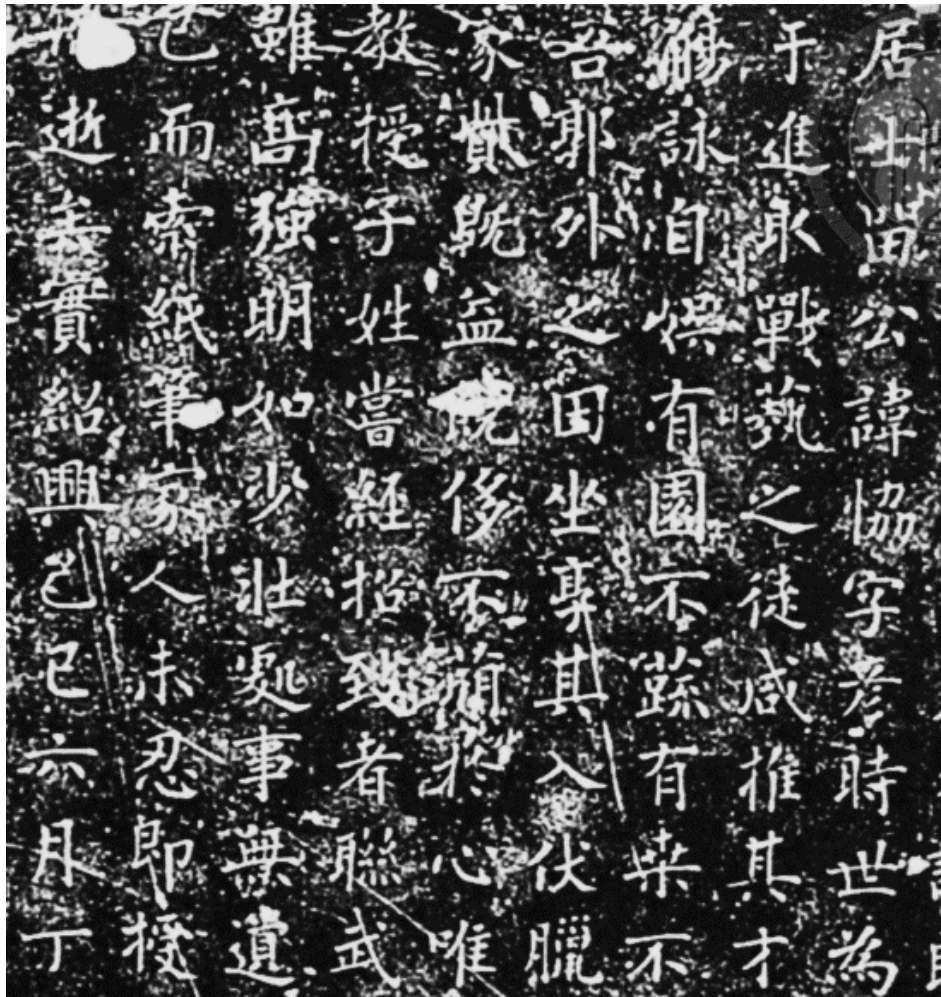 居士田公諱協字彥時世為
于進取戰藝之徒咸推其才
觴詠自娛有園不蔬有栗不
吾郭外之田坐享其入伏臘
家貲既益既侈不簡於心唯
教授子姓嘗經招致者聯武
雖高強明如少壯處事無遺
已而索紙筆家人未忍即授
逝矣實紹興己巳六月丁